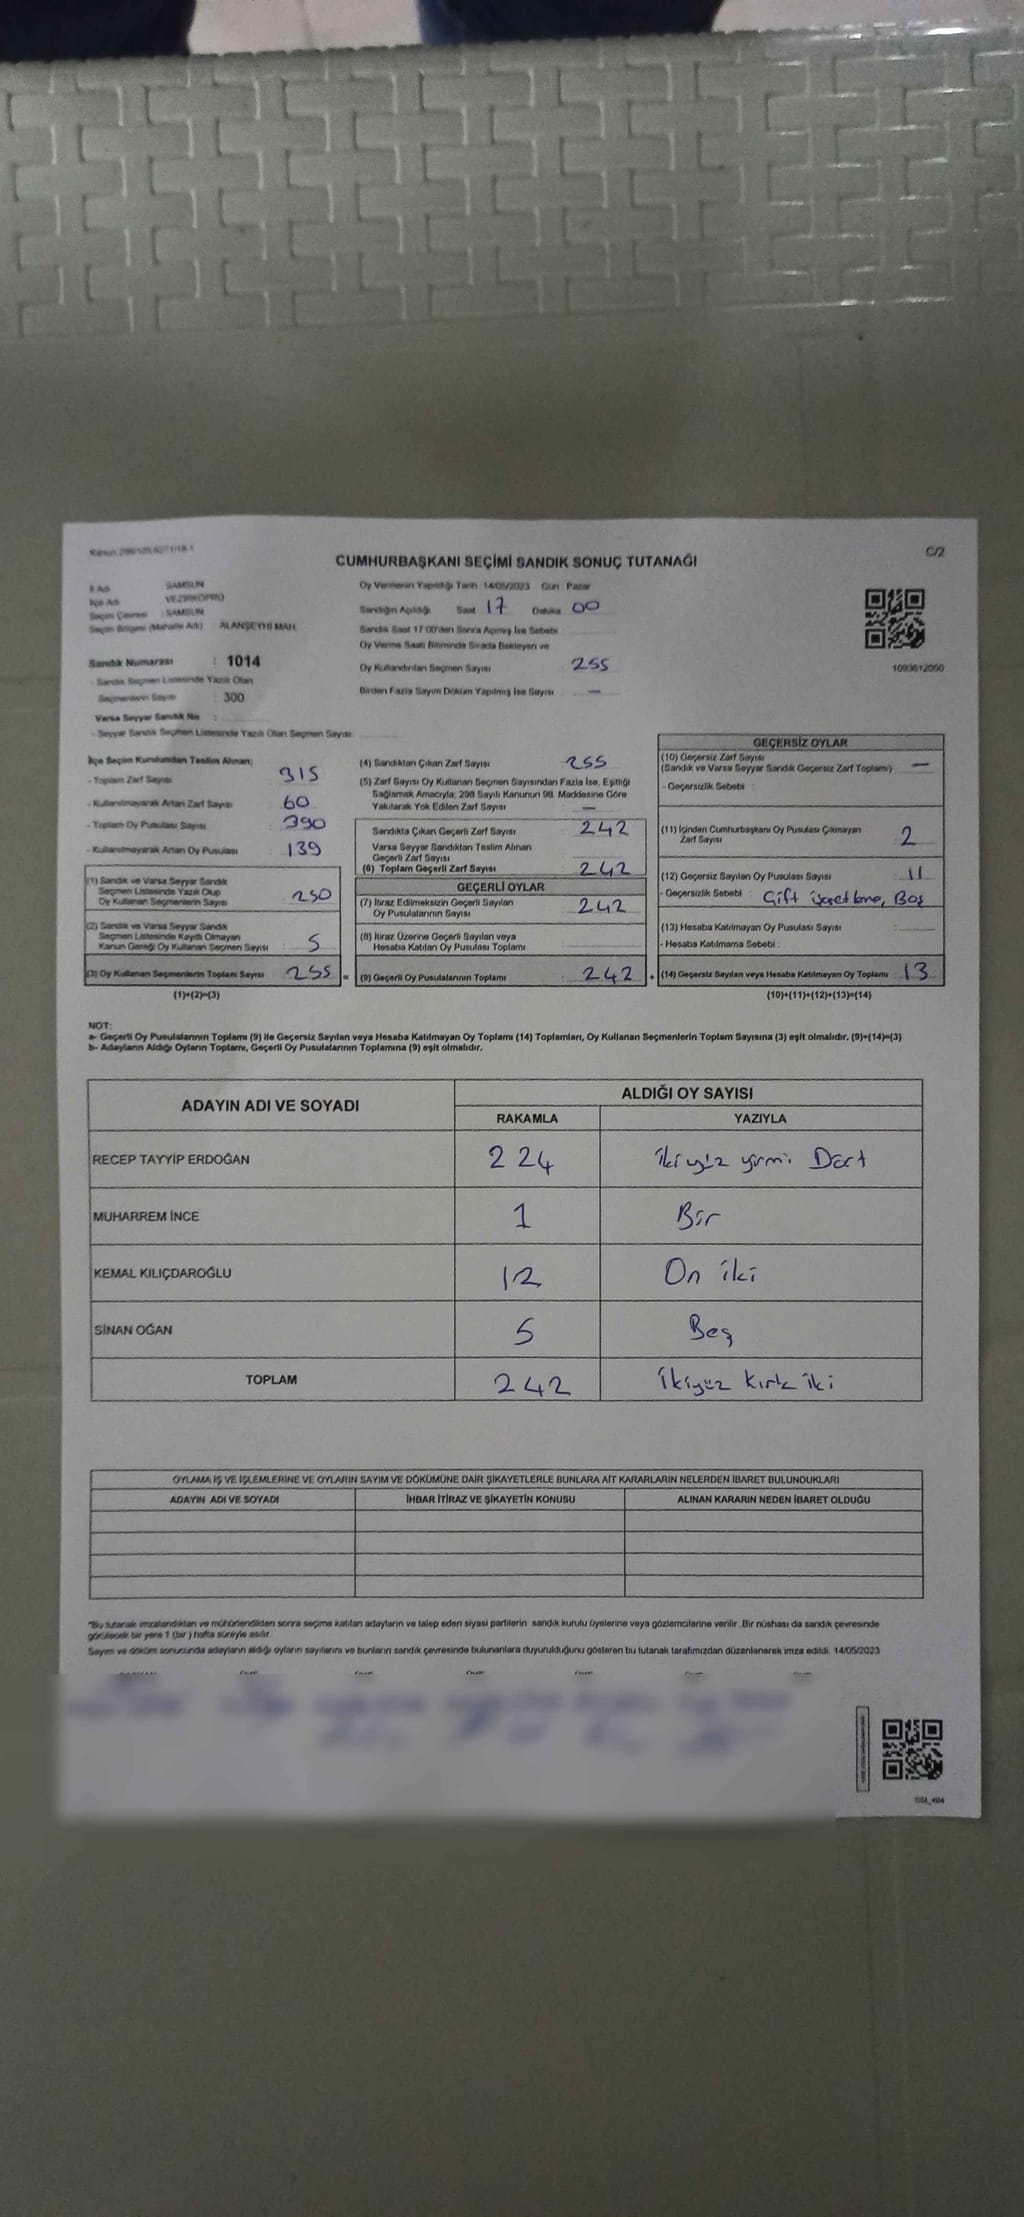 C/2
CUMHURBAŞKANI SEÇİMİ SANDIK SONUÇ TUTANAĞI
İl Adı : SAMSUN
İlçe Adı : VEZİRKÖPRÜ
Seçim Çevresi : SAMSUN
Seçim Bölgesi (Mahalle Adı) : ALANŞEYHİ MAH.
Sandık Numarası : 1014
- Sandık Seçmen Listesinde Yazılı Olan
Seçmenlerin Sayısı : 300
Varsa Seyyar Sandık No :
- Seyyar Sandık Seçmen Listesinde Yazılı Olan Seçmen Sayısı:
Oy Vermenin Yapıldığı Tarih 14/05/2023 Gün: Pazar
Sandığın Açıldığı Saat 17 Dakika 00
Sandık Saat 17:00'den Sonra Açılmış İse Sebebi
Oy Verme Saati Bitiminde Sırada Bekleyen ve
Oy Kullandırılan Seçmen Sayısı 255
Birden Fazla Sayım Döküm Yapılmış İse Sayısı : —
1093612050
İlçe Seçim Kurulundan Teslim Alınan;
- Toplam Zarf Sayısı 315
- Kullanılmayarak Artan Zarf Sayısı 60
- Toplam Oy Pusulası Sayısı 390
- Kullanılmayarak Artan Oy Pusulası 139
(1) Sandık ve Varsa Seyyar Sandık
Seçmen Listesinde Yazılı Olup
Oy Kullanan Seçmenlerin Sayısı 250
(2) Sandık ve Varsa Seyyar Sandık
Seçmen Listesinde Kayıtlı Olmayan
Kanun Gereği Oy Kullanan Seçmen Sayısı 5
(3) Oy Kullanan Seçmenlerin Toplam Sayısı 255 =
(1)+(2)=(3)
(4) Sandıktan Çıkan Zarf Sayısı 255
(5) Zarf Sayısı Oy Kullanan Seçmen Sayısından Fazla İse, Eşitliği
Sağlamak Amacıyla, 298 Sayılı Kanunun 98. Maddesine Göre
Yakılarak Yok Edilen Zarf Sayısı —
Sandıkta Çıkan Geçerli Zarf Sayısı 242
Varsa Seyyar Sandıktan Teslim Alınan
Geçerli Zarf Sayısı
(6) Toplam Geçerli Zarf Sayısı 242
GEÇERLİ OYLAR
(7) İtiraz Edilmeksizin Geçerli Sayılan
Oy Pusulalarının Sayısı 242
(8) İtiraz Üzerine Geçerli Sayılan veya
Hesaba Katılan Oy Pusulası Toplamı
(9) Geçerli Oy Pusulalarının Toplamı : 242 +
GEÇERSİZ OYLAR
(10) Geçersiz Zarf Sayısı
(Sandık ve Varsa Seyyar Sandık Geçersiz Zarf Toplamı) —
- Geçersizlik Sebebi :
(11) İçinden Cumhurbaşkanı Oy Pusulası Çıkmayan
Zarf Sayısı 2
(12) Geçersiz Sayılan Oy Pusulası Sayısı 11
- Geçersizlik Sebebi : Boş
(13) Hesaba Katılmayan Oy Pusulası Sayısı
- Hesaba Katılmama Sebebi :
(14) Geçersiz Sayılan veya Hesaba Katılmayan Oy Toplamı 13
(10)+(11)+(12)+(13)=(14)
NOT:
a- Geçerli Oy Pusulalarının Toplamı (9) ile Geçersiz Sayılan veya Hesaba Katılmayan Oy Toplamı (14) Toplamları, Oy Kullanan Seçmenlerin Toplam Sayısına (3) eşit olmalıdır. (9)+(14)=(3)
b- Adayların Aldığı Oyların Toplamı, Geçerli Oy Pusulalarının Toplamına (9) eşit olmalıdır.
ADAYIN ADI VE SOYADI ALDIĞI OY SAYISI
RAKAMLA YAZIYLA
RECEP TAYYİP ERDOĞAN 224 ikiyüz yirmi Dört
MUHARREM İNCE 1 Bir
KEMAL KILIÇDAROĞLU 12 On iki
SİNAN OĞAN 5 Beş
TOPLAM 242 ikiyüz kırk iki
OYLAMA İŞ VE İŞLEMLERİNE VE OYLARIN SAYIM VE DÖKÜMÜNE DAİR ŞİKAYETLERLE BUNLARA AİT KARARLARIN NELERDEN İBARET BULUNDUKLARI
ADAYIN ADI VE SOYADI İHBAR İTİRAZ VE ŞİKAYETİN KONUSU ALINAN KARARIN NEDEN İBARET OLDUĞU
*Bu tutanak imzalandıktan ve mühürlendikten sonra seçime katılan adayların ve talep eden siyasi partilerin sandık kurulu üyelerine veya gözlemcilerine verilir. Bir nüshası da sandık çevresinde
görülecek bir yere 1 (bir) hafta süreyle asılır.
Sayım ve döküm sonucunda adayların aldığı oyların sayılarını ve bunların sandık çevresinde bulunanlara duyurulduğunu gösteren bu tutanak tarafımızdan düzenlenerek imza edildi. 14/05/2023